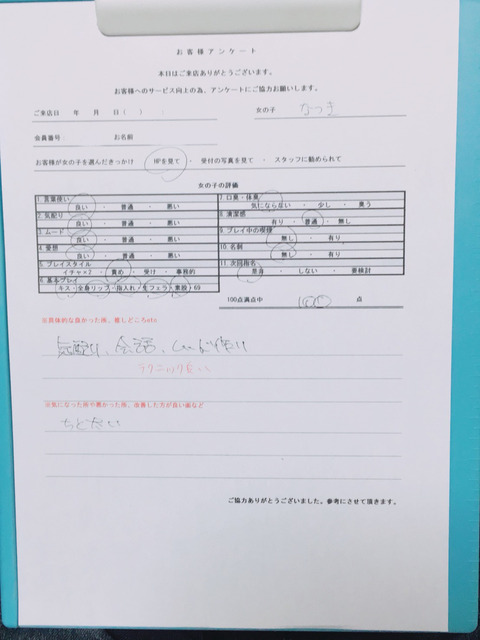 お客様アンケート
本日はご来店ありがとうございます。
お客様へのサービス向上の為、アンケートにご協力お願いします。
ご来店日 年 月 日( )
女の子 なつき
会員番号 お名前
お客様が女の子を選んだきっかけ HPを見て ・ 受付の写真を見て ・ スタッフに勧められて
女の子の評価
1.言葉使い
良い ・ 普通 ・ 悪い
2.気配り
良い ・ 普通 ・ 悪い
3.ムード
良い ・ 普通 ・ 悪い
4.愛想
良い ・ 普通 ・ 悪い
5.プレイスタイル
イチャ×2 ・ 責め ・ 受け ・ 事務的
6.基本プレイ
キス・全身リップ・指入れ・生フェラ・素股・69
7.口臭・体臭
気にならない ・ 少し ・ 臭う
8.清潔感
有り ・ 普通 ・ 無し
9.プレイ中の喫煙
無し ・ 有り
10.名刺
無し ・ 有り
11.次回指名
是非 ・ しない ・ 要検討
100点満点中 点
※具体的な良かった所、推しどころetc
気配り、会話、ムード作り
テクニック良い
※気になった所や悪かった所、改善した方が良い歯など
ご協力ありがとうございました。参考にさせて頂きます。